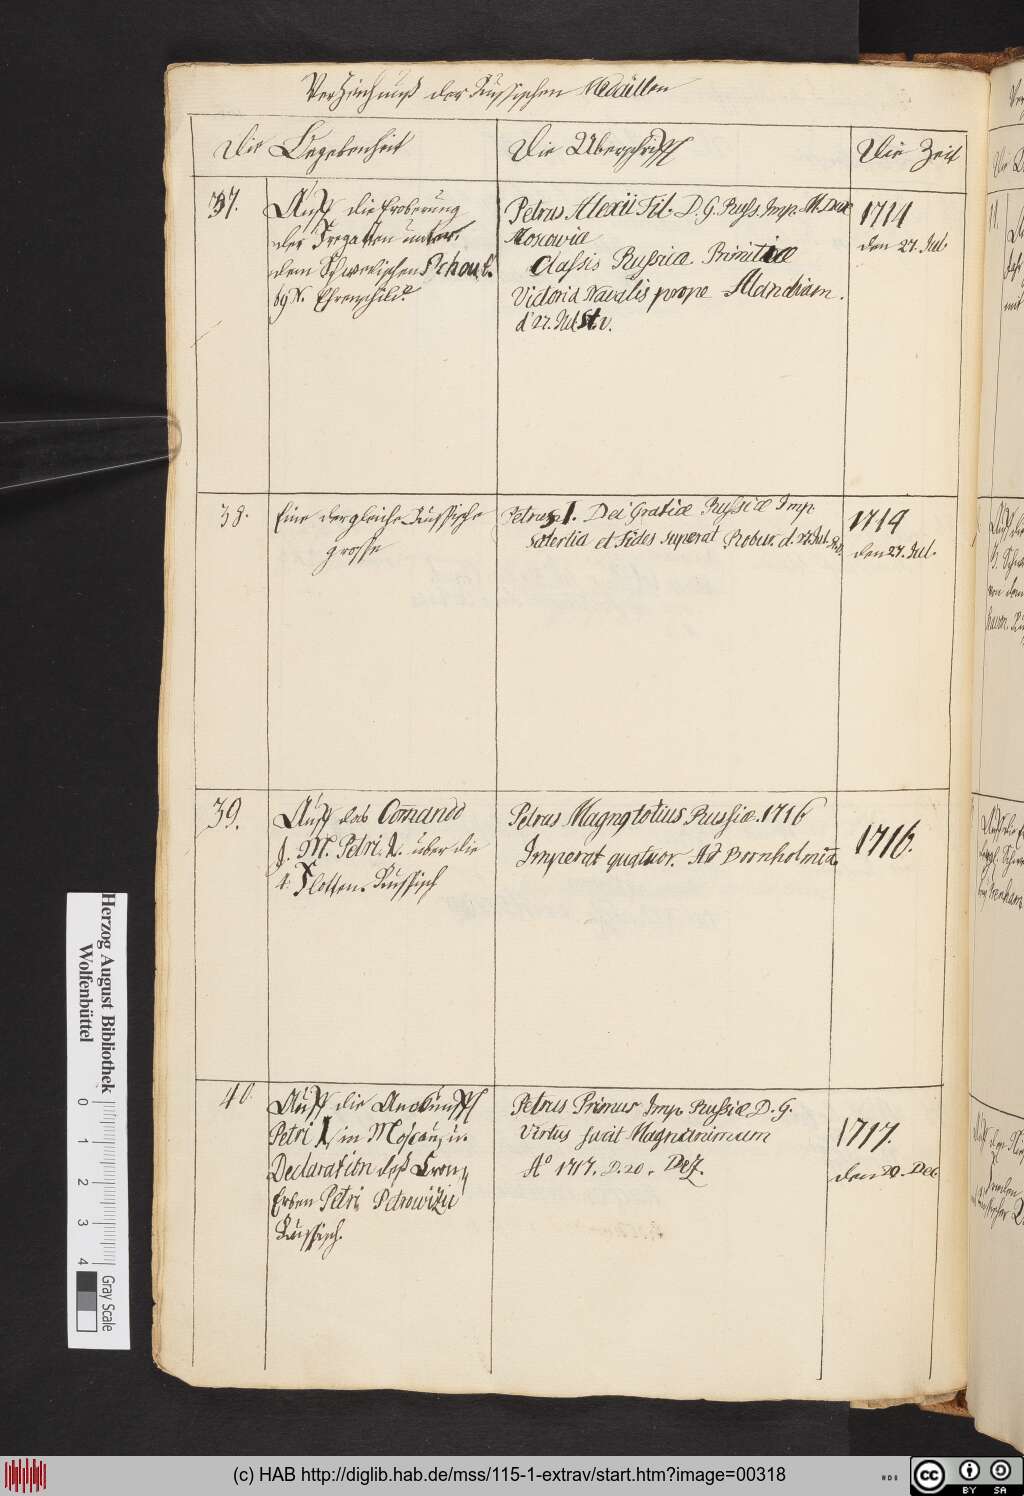 Verzeichnuß der Russischen Medaillen
Die Begebenheit
Die Uberschrifft
Die Zeit
37.
Auff die Eroberung
der Fregatten unter
dem Schwedischen Schou
Ehrenschild
Petrus Alexii Fil. D. G. Russ. Imp. M. Dux
Moscowiæ
Classis Russica Primitiæ
Victoria Navalis prope Alandiam.
d. 27. Jul. St. v.
1714
den 27. Jul.
38.
Eine dergleiche Russische
grosse
Petrus I. Dei Gratiæ Russiæ Imp.
Solertia et Fides superat Robur. d. 27. Jul.
1714
den 27. Jul.
39.
Auff das Comando
J. M. Petri. I. über die
4. Flotten. Russisch
Petrus Magng totius Russiæ. 1716
Imperat quatuor. Ad Bornholmia.
1716.
40.
Auff die Ankunfft
Petri I in Moscau, u.
Declaration deß Cron
Erben Petri Petrowizii
Russisch.
Petrus Primus Imp. Russiæ D. G.
Virtus facit Magnanimum
Aº 1717. D. 20. Dez.
1717.
den 20. Dec
Herzog August Bibliothek
Wolfenbüttel
0 1 2 3 4
Gray Scale
(c) HAB http://diglib.hab.de/mss/115-1-extrav/start.htm?image=00318
cc BY SA